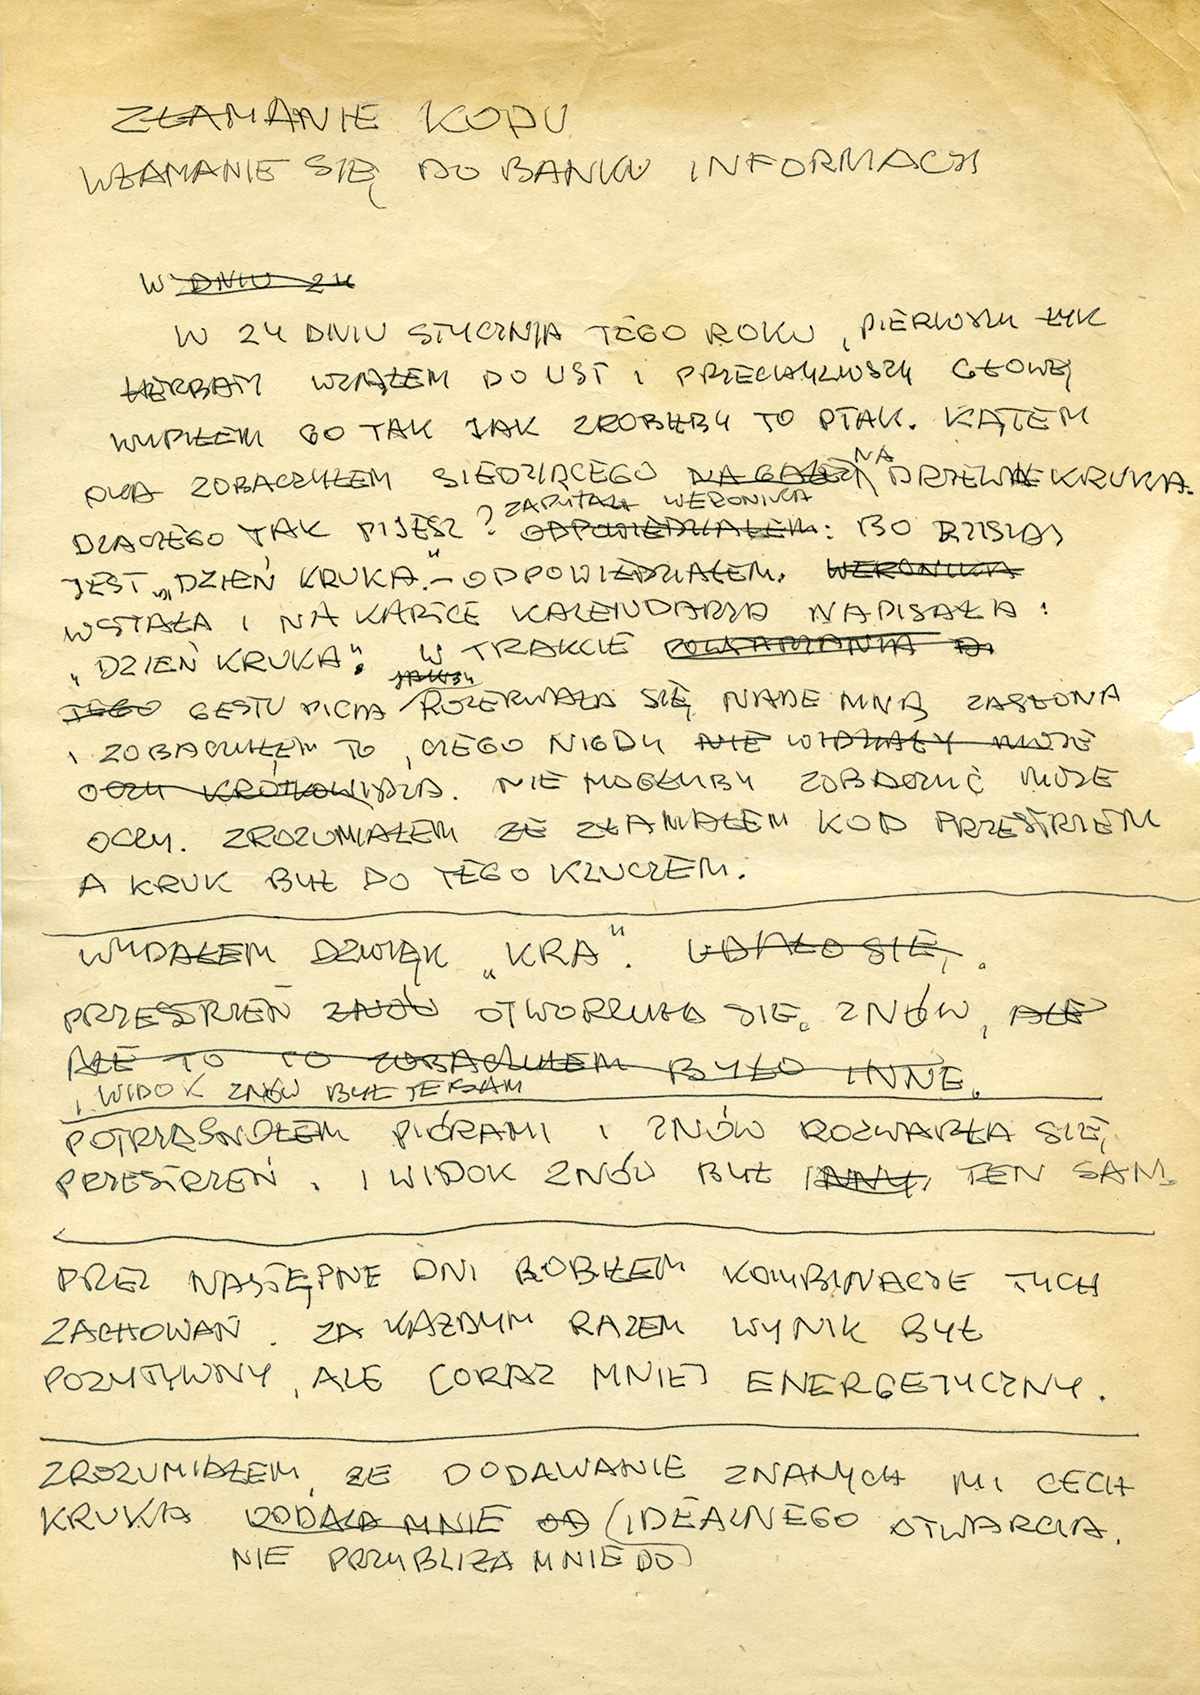 ZŁAMANIE KODU
WŁAMANIE SIĘ DO BANKU INFORMACJI
W DNIU 24
W 24 DNIU STYCZNIA TEGO ROKU, PIERWSZY ŁYK
HERBATY WZIĄŁEM DO UST I PRZECHYLIWSZY GŁOWĘ
WYPIŁEM GO TAK JAK ZROBIŁBY TO PTAK. KĄTEM
OKA ZOBACZYŁEM SIEDZĄCEGO NA GAŁĘZI NA DRZEWIE KRUKA.
ZAPYTAŁA WERONIKA
DLACZEGO TAK PIJESZ? ODPOWIEDZIAŁEM: BO DZISIAJ
JEST „DZIEŃ KRUKA." – ODPOWIEDZIAŁEM. WERONIKA
WSTAŁA I NA KARTCE KALENDARZA NAPISAŁA:
„DZIEŃ KRUKA". W TRAKCIE
TEGO GESTU PICIA JAKBY ROZERWAŁA SIĘ NADE MNĄ ZASŁONA
I ZOBACZYŁEM TO, CZEGO NIGDY NIE WIDZIAŁY MOJE
OCZY KRÓTKOWIDZA. NIE MOGŁYBY ZOBACZYĆ MOJE
OCZY. ZROZUMIAŁEM ŻE ZŁAMAŁEM KOD PRZESTRZENI
A KRUK BYŁ DO TEGO KLUCZEM.
WYDAŁEM DZWIĘK „KRA". UDAŁO SIĘ,.
PRZESTRZEŃ ZNÓW OTWORZYŁA SIĘ. ZNÓW, ALE
ALE TO CO ZOBACZYŁEM BYŁO INNE.
I WIDOK ZNÓW BYŁ TEN SAM
POTRZĄSNĄŁEM PIÓRAMI I ZNÓW ROZWARŁA SIĘ
PRZESTRZEŃ. I WIDOK ZNÓW BYŁ INNY, TEN SAM.
PRZEZ NASTĘPNE DNI ROBIŁEM KOMBINACJE TYCH
ZACHOWAŃ. ZA KAŻDYM RAZEM WYNIK BYŁ
POZYTYWNY, ALE CORAZ MNIEJ ENERGETYCZNY.
ZROZUMIAŁEM, ŻE DODAWANIE ZNANYCH MI CECH
KRUKA ODDALA MNIE OD (IDEALNEGO OTWARCIA.
NIE PRZYBLIŻA MNIE DO)